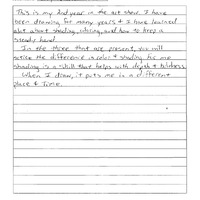 This is my 2nd year in the art show. I have
been drawing for many years & I have learned
alot about shading, coloring, and how to keep a
steady hand.
In the three that are present, you will
notice the difference in color & shading. For me
shading is a skill that helps with depth & thickness.
When I draw, it puts me in a different
place & Time.